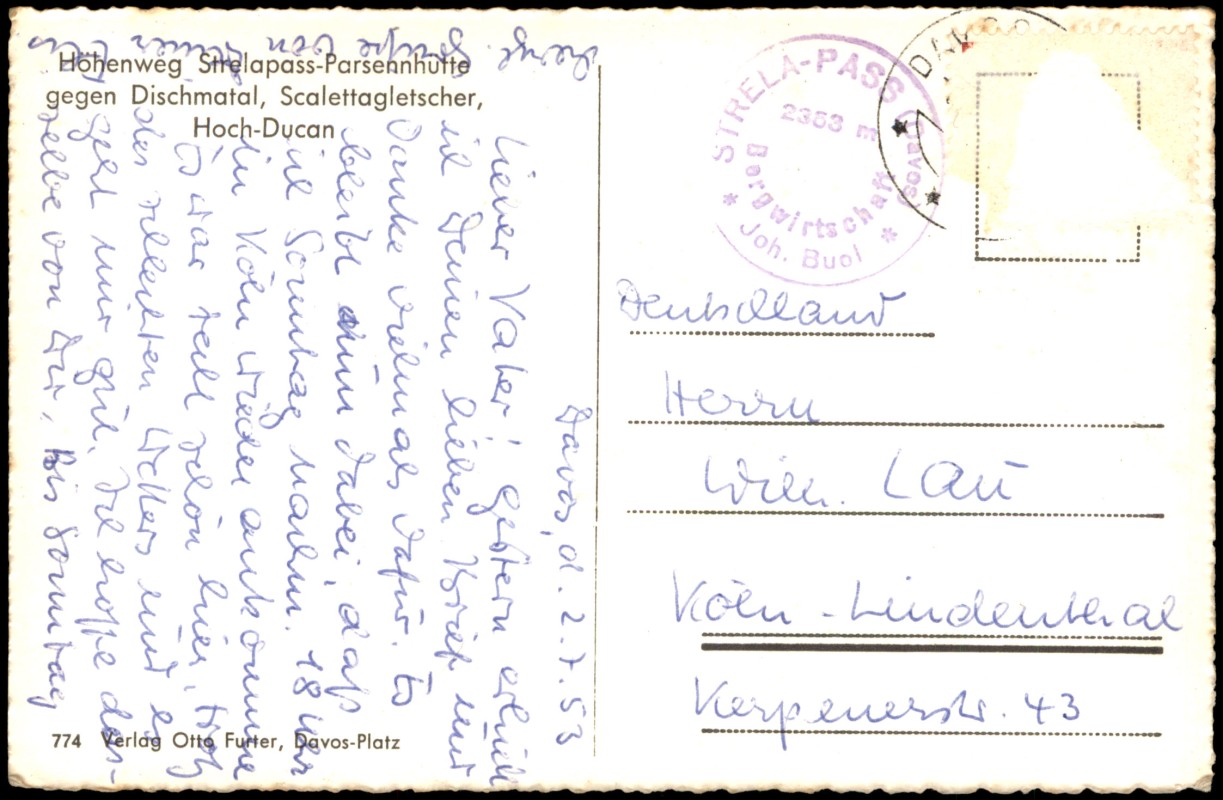 Höhenweg Strelapass-Parsennhütte
gegen Dischmatal, Scalettagletscher,
Hoch-Ducan
Davos, d. 2.7.53
Lieber Vater! Gestern erhielt
ich Deinen lieben Brief und
Danke vielmals dafür. Es
bleibt nun dabei, daß
ich Sonntag nachm. 18 Uhr
in Köln wieder ankomme
Es war sehr schön hier, trotz
des schlechten Wetters und es
geht mir gut. Ich hoffe das-
selbe von Dir, Bis Sonntag
Herzl.
Grüße von
Deiner
774 Verlag Otto Furter, Davos-Platz
STRELA-PASS (Davos)
2353 m
Bergwirtschaft
* Joh. Buol *
DAVOS
Deutschland
Herrn
Wilh. Lau
Köln-Lindenthal
Kerpenerstr. 43